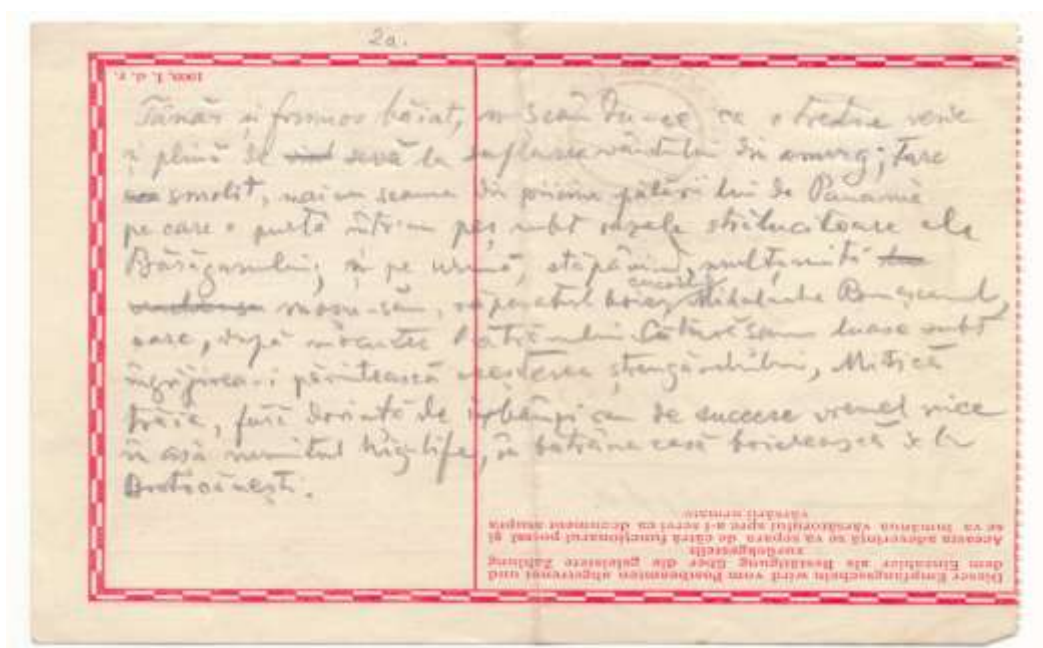 2a.
1000. f. d. r.
Tânăr și frumos băiat, ca o trestie verde
și plină de sevă la suflarea vântului din amurg; tare
smolit, mai cu seamă din pricina pălăriei lui de Panama
pe care o purta într-un peș subt razele strălucitoare ale
Bărăganului; și pe urmă, stăpânind, mulțumită
moșu-său, răposatul boier, Mihalache
care, după moartea subt
îngrijirea-i părintească creșterea ștrengarului, Mitică
trăia, fără dorință de izbânzi ori de succese vremelnice
în așa numitul high-life, în bătrâna casă boierească de la
Dieser Empfangsschein wird vom Postbeamten abgetrennt und
dem Einzahler als Bestätigung über die geleistete Zahlung
zurückgestellt
Aceasta adeverință se va separa de către funcționarul poștal și
se va înmâna vărsătorului spre a-i servi ca document asupra
vărsării urmate